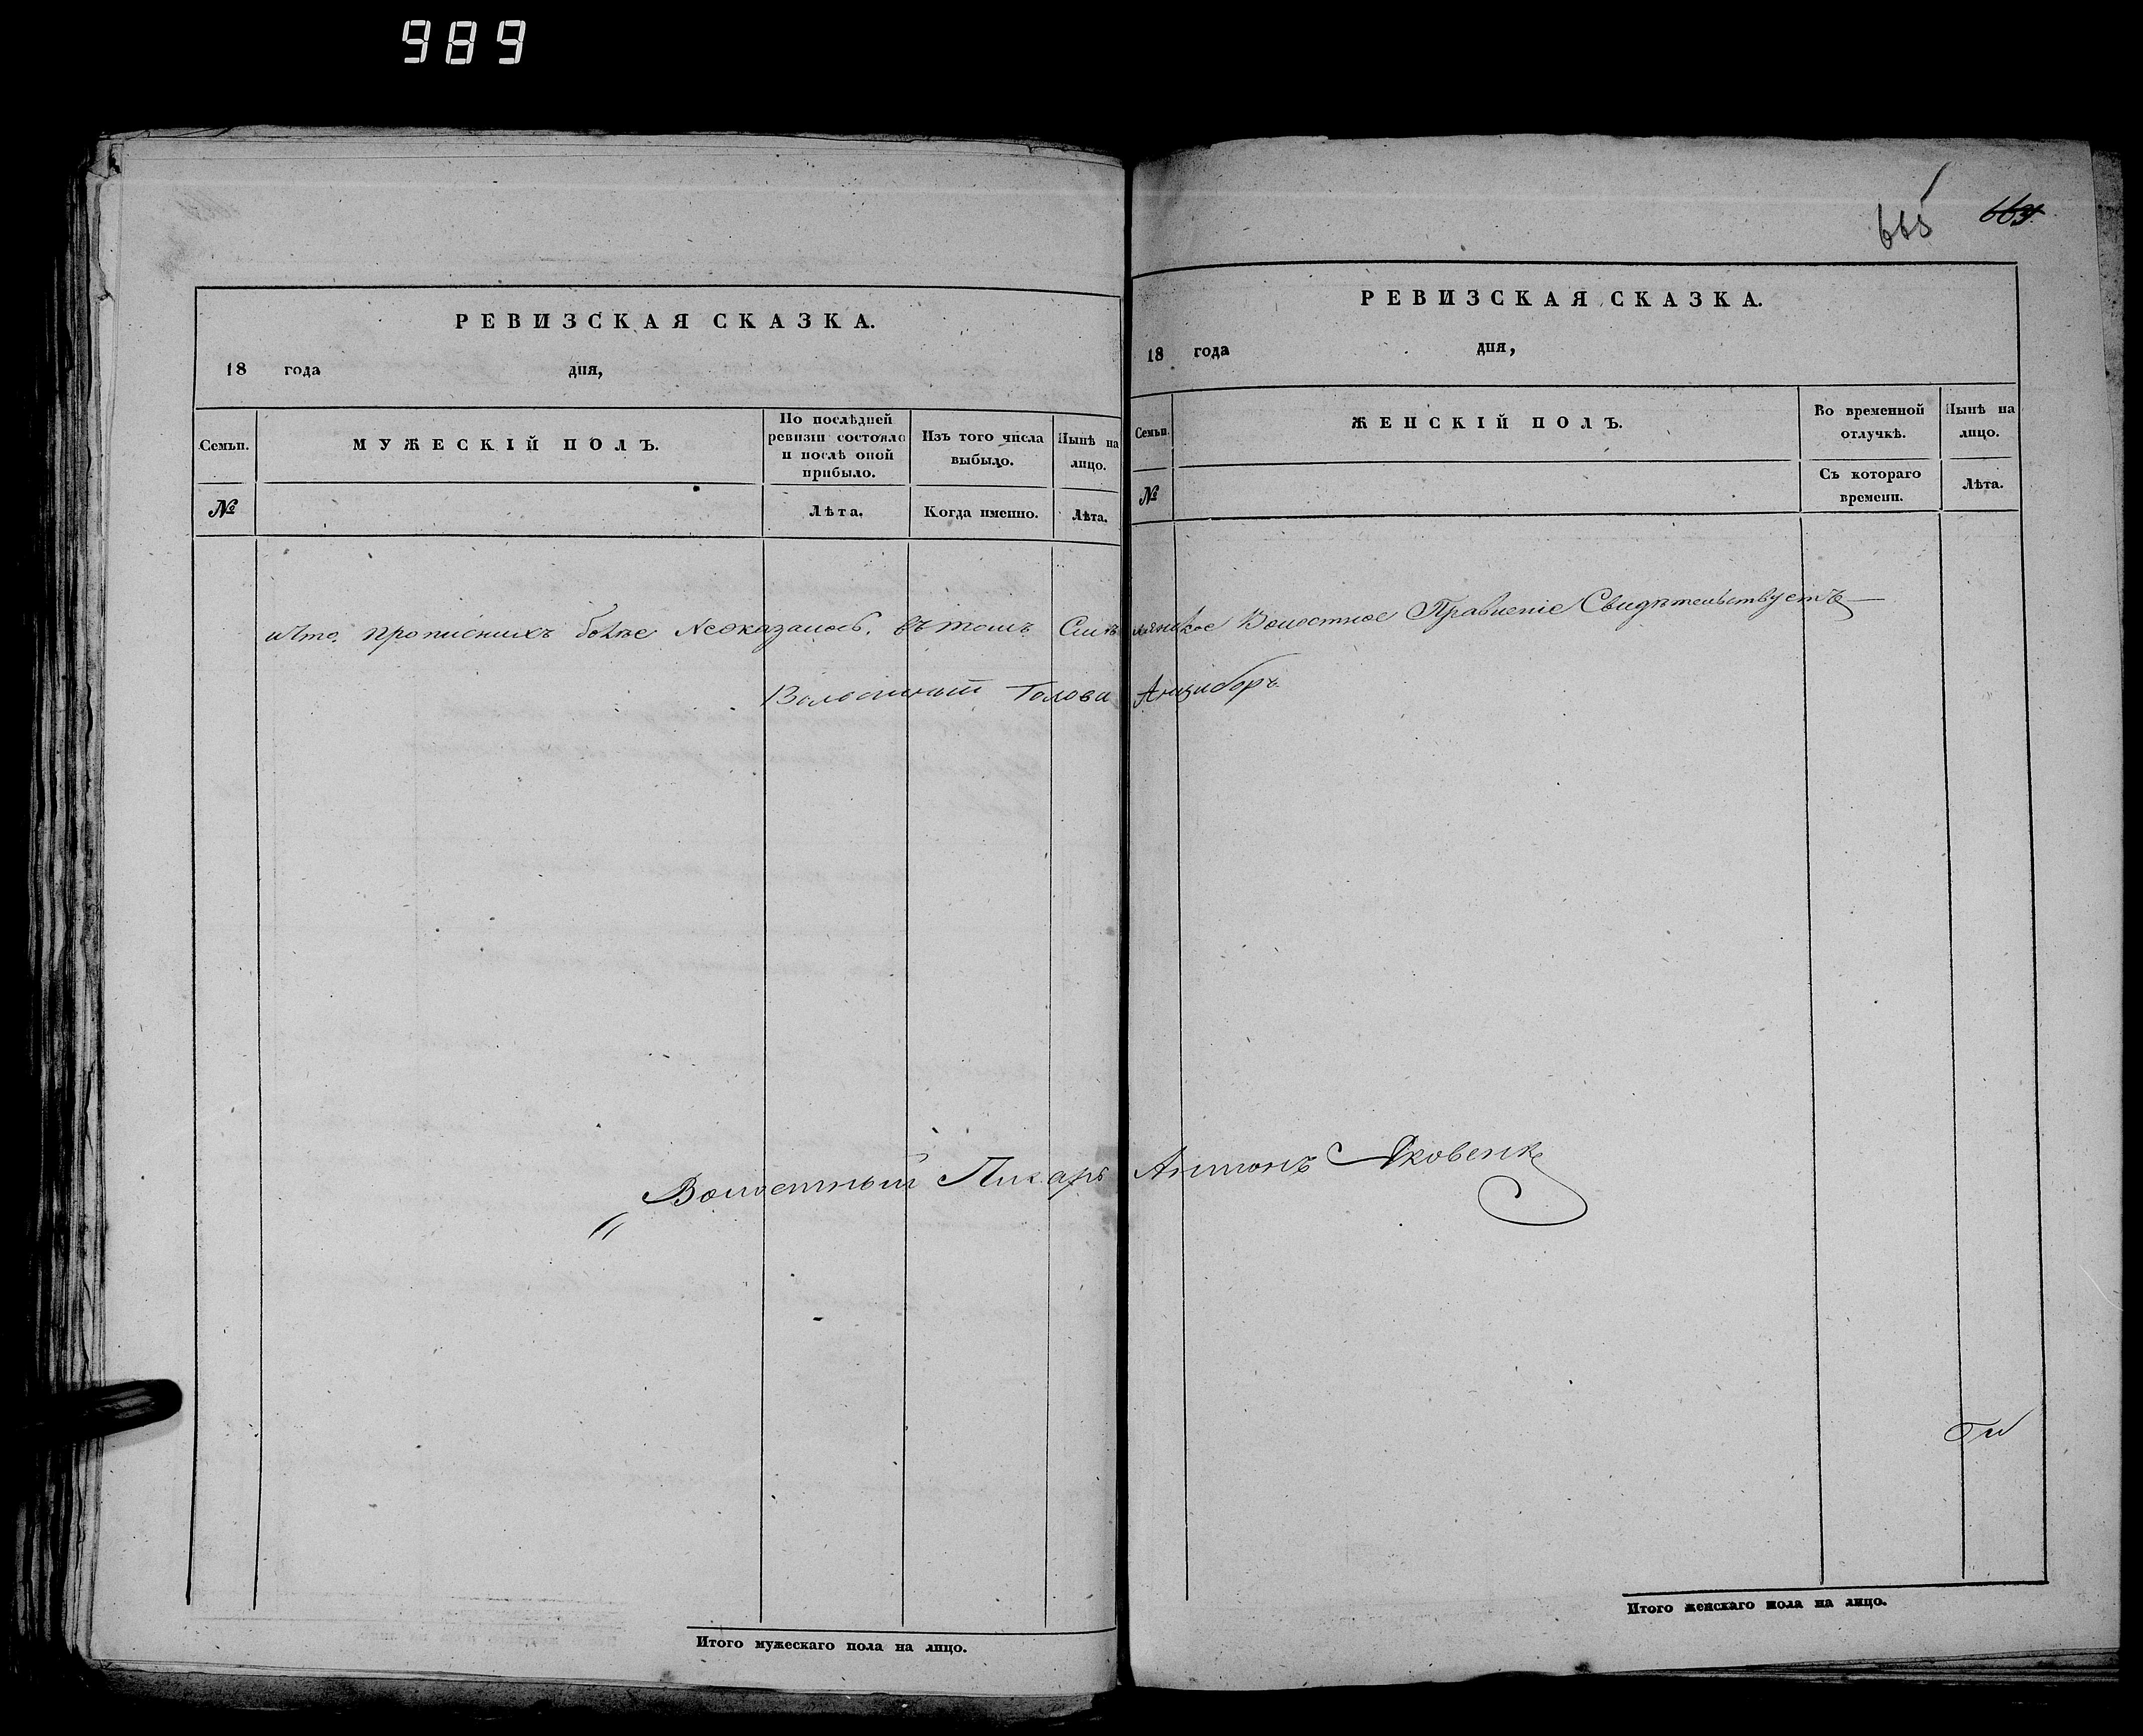 989
665 664
РЕВИЗСКАЯ СКАЗКА.
18 года дня,
Семьи.
МУЖЕСКІЙ ПОЛЪ.
По послѣдней ревизіи состояло и послѣ оной прибыло.
Изъ того числа выбыло.
Нынѣ на лицо.
№
Лѣта.
Когда именно.
Лѣта.
РЕВИЗСКАЯ СКАЗКА.
18 года дня,
Семьи.
ЖЕНСКІЙ ПОЛЪ.
Во временной отлучкѣ.
Нынѣ на лицо.
№
Съ котораго времени.
Лѣта.
и что прописныхъ болѣе неоказалось, въ томъ Смѣлянское Волостное Правленіе Свидѣтельствуетъ
Волостный Голова Анцыборъ
Волостный Писарь Антонъ Яковенко
Итого мужескаго пола на лицо.
Итого женскаго пола на лицо.